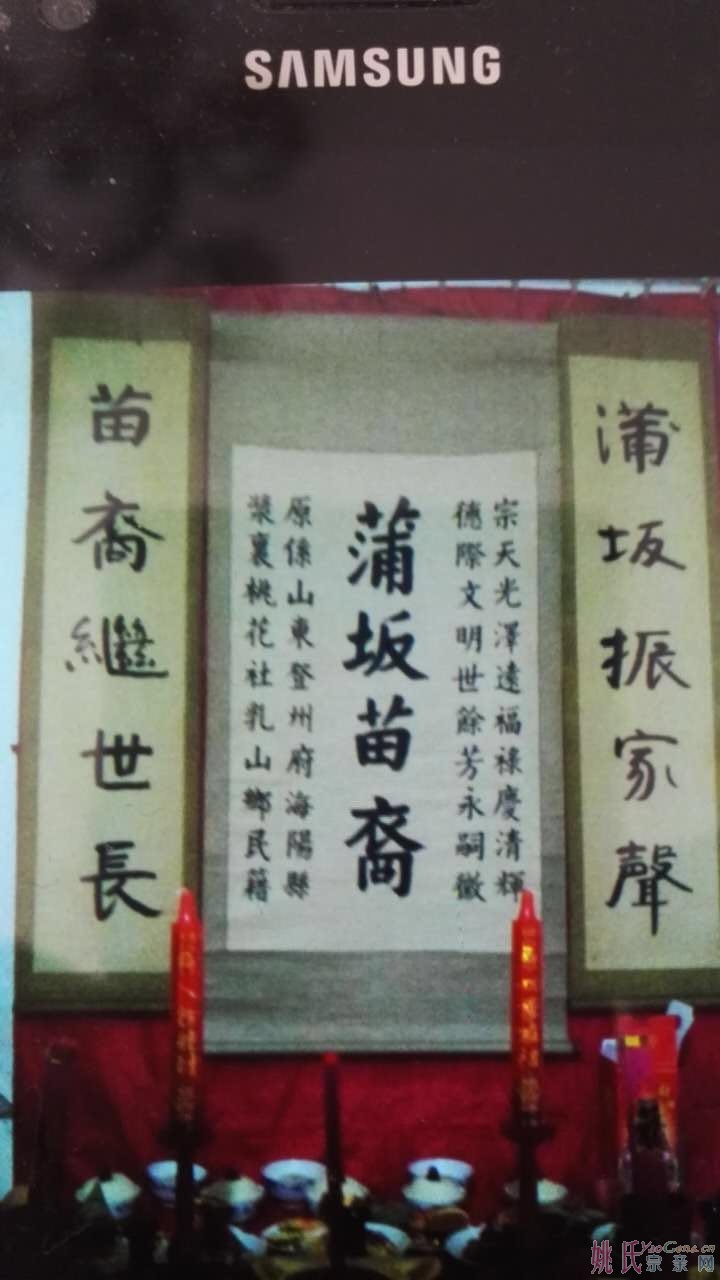 SAMSUNG
蒲坂振家聲
宗天光澤遠福祿慶清輝
德際文明世餘芳永嗣徽
蒲坂苗裔
原係山東登州府海陽縣
漿裏桃花社乳山鄉民籍
苗裔繼世長
姚氏宗亲网
YaoGens.cn